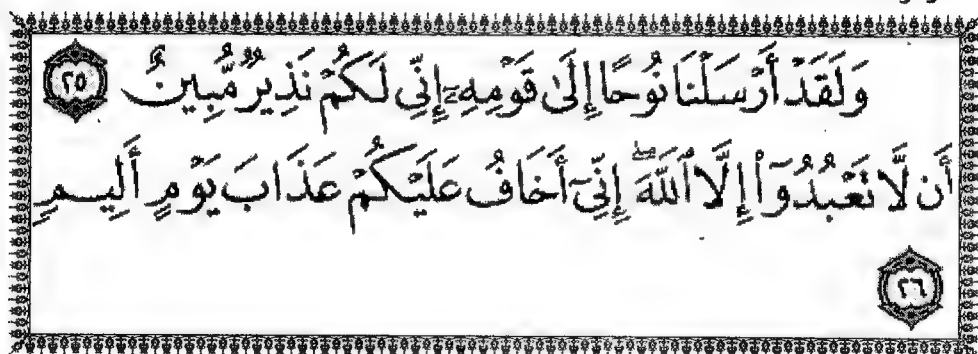 وَلَقَدْ أَرْسَلْنَا نُوحًا إِلَىٰ قَوْمِهِۦٓ إِنِّي لَكُمْ نَذِيرٌ مُّبِينٌ ٢٥
أَن لَّا تَعْبُدُوٓا۟ إِلَّا ٱللَّهَ ۖ إِنِّىٓ أَخَافُ عَلَيْكُمْ عَذَابَ يَوْمٍ أَلِيمٍ
٢٦